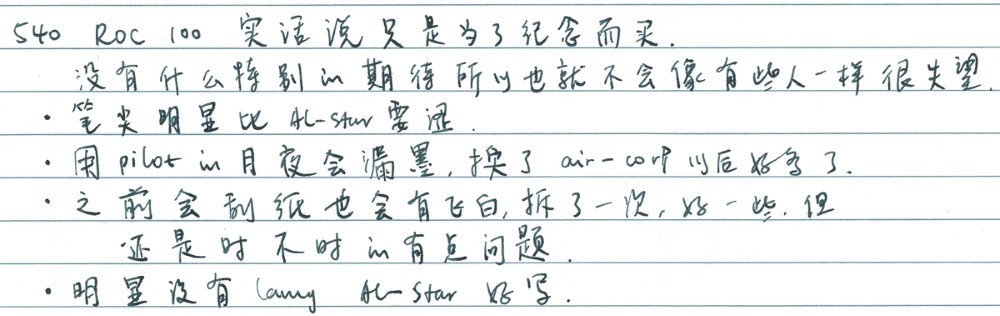 540 ROC 100 实话说只是为了纪念而买.
没有什么特别的期待所以也就不会像有些人一样很失望.
· 笔尖明显比 AL-Star 要涩.
· 用 pilot 的月夜会漏墨, 换了 air-corp 以后好多了.
· 之前会刮纸也会有飞白, 拆了一次, 好一些. 但
还是时不时的有点问题.
· 明显没有 Lamy AL-Star 好写.